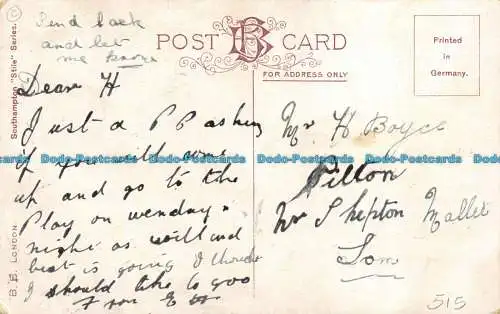 Send back
and let
me know
Southampton "Stile" Series.
B.B. LONDON
POST CARD
FOR ADDRESS ONLY
Printed
in
Germany.
Dear H
Just a P P asking
if you will come
up and go to the
Play on wenday
night as will and
best is going I thought
I should like to goo
From E
Mr H Boyce
Pillon
Nr Shepton Mallet
Som
515
Do-Postcards Do-Postcards Do-Postcards Do-Postcards